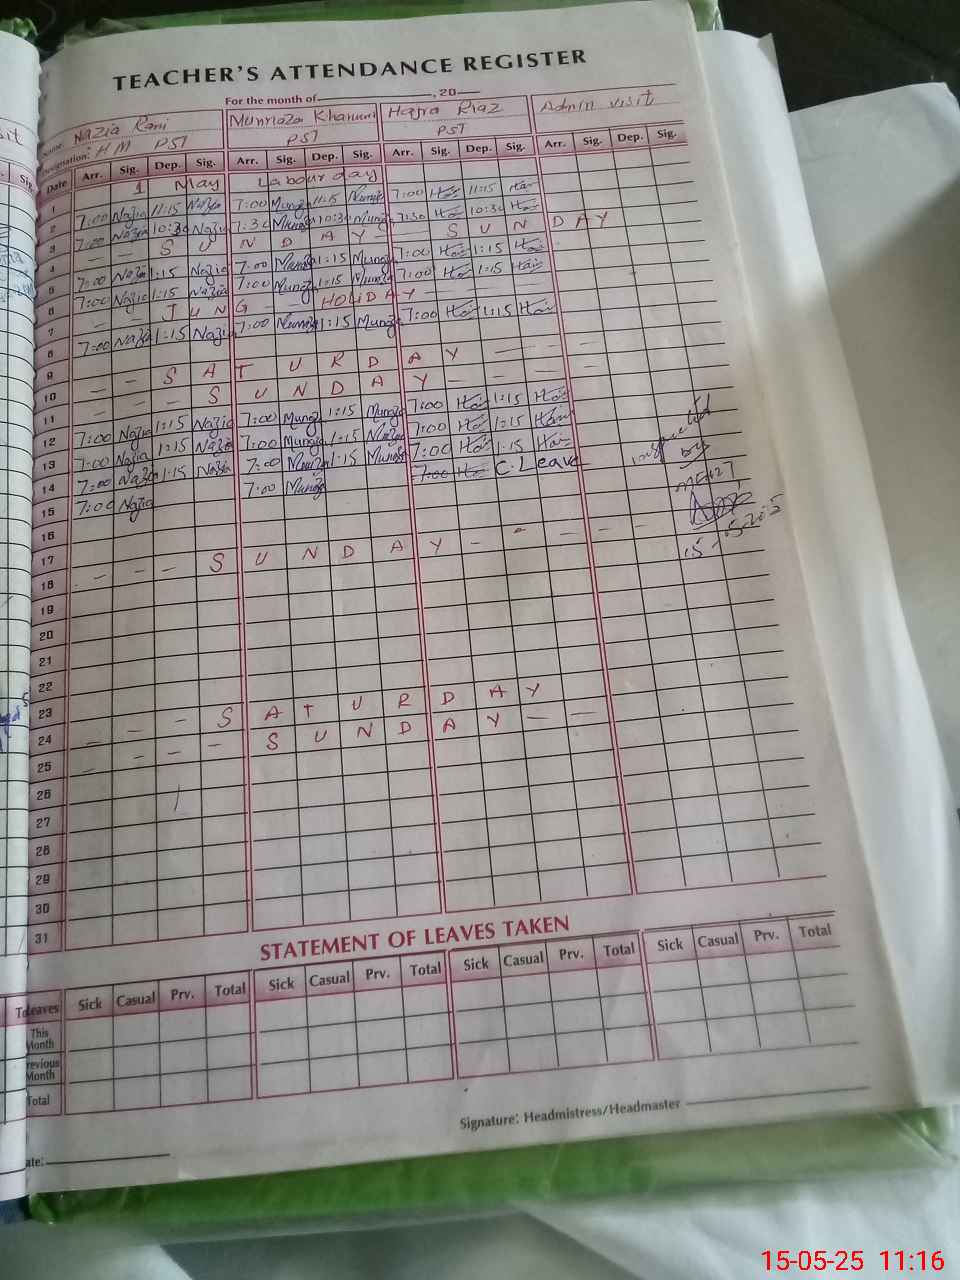 TEACHER'S ATTENDANCE REGISTER
For the month of , 20
Name: Nazia Rani Munnaza Khanum Hajra Riaz Admin visit
Designation: HM PST PST PST
Date Arr. Sig. Dep. Sig. Arr. Sig. Dep. Sig. Arr. Sig. Dep. Sig. Arr. Sig. Dep. Sig.
1 1 May Labour day
2 7:00 Nazia 11:15 Nazia 7:00 Munaza 11:15 Munaza 7:00 11:15
3 7:00 Nazia 10:30 Nazia 7:30 Munaza 10:30 Munaza 7:30 10:30
4 - - S U N D A Y - S U N D A Y
5 7:00 Nazia 1:15 Nazia 7:00 Munaza 1:15 Munaza 7:00 1:15
6 7:00 Nazia 1:15 Nazia 7:00 Munaza 1:15 Munaza 7:00 1:15
7 - - J U N G HOLIDAY - - - -
8 7:00 Nazia 1:15 Nazia 7:00 Munaza 1:15 Munaza 7:00 1:15
9
10 - - S A T U R D A Y - - - -
11 - - - S U N D A Y - - - -
12 7:00 Nazia 1:15 Nazia 7:00 Munaza 1:15 Munaza 7:00 1:15
13 7:00 Nazia 1:15 Nazia 7:00 Munaza 1:15 Munaza 7:00 1:15
14 7:00 Nazia 1:15 Nazia 7:00 Munaza 1:15 Munaza 7:00 1:15
15 7:00 Nazia 7:00 Munaza 7:00 C. Leave
inspected
by
15-5-2025
16
17
18 - - - S U N D A Y - - - - -
19
20
21
22
23
24 - - - S A T U R D A Y
25 - - - - S U N D A Y - -
26
27
28
29
30
31
STATEMENT OF LEAVES TAKEN
Leaves Sick Casual Prv. Total Sick Casual Prv. Total Sick Casual Prv. Total Sick Casual Prv. Total
This Month
Previous Month
Total
Signature: Headmistress/Headmaster
Date:
15-05-25 11:16